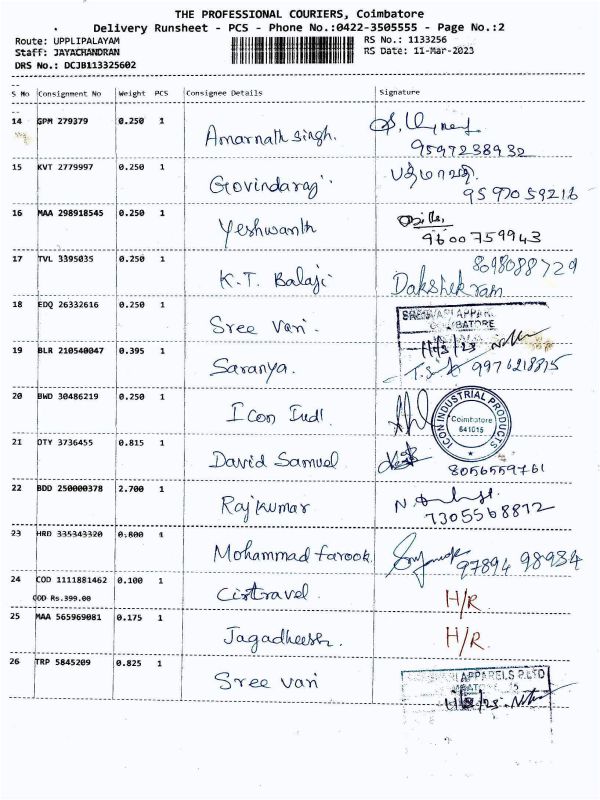 THE PROFESSIONAL COURIERS, Coimbatore
Delivery Runsheet - PCS - Phone No.:0422-3505555 - Page No.:2
Route: UPPLIPALAYAM
Staff: JAYACHANDRAN
DRS No.: DCJB113325602
RS No.: 1133256
RS Date: 11-Mar-2023
S No Consignment No Weight PCS Consignee Details Signature
14 GPM 279379 0.250 1 Amarnath singh.
9597238932
15 KVT 2779997 0.250 1 Govindaraj. பத்மாவதி.
9597059216
16 MAA 298918545 0.250 1 Yeshwanth
9600759943
17 TVL 3395035 0.250 1 K.T. Balaji 8098088729
Dakshek ram
18 EDQ 26332616 0.250 1 Sree vari.
COIMBATORE
11/3/23
19 BLR 210540047 0.395 1 Saranya. 9976218815
20 BWD 30486219 0.250 1 Icon Indl.
ICON INDUSTRIAL PRODUCTS
Coimbatore
641015
21 OTY 3736455 0.815 1 David Samuel
8056559761
22 BDD 250000378 2.700 1 Rajkumar
7305568872
23 HRD 335343320 0.800 1 Mohammad farook. 97894 98984
24 COD 1111881462 0.100 1 Cistravel. H/R
COD Rs.399.00
25 MAA 565969081 0.175 1 Jagadheesh. H/R
26 TRP 5845209 0.825 1 Sree vari
APPARELS P.LTD